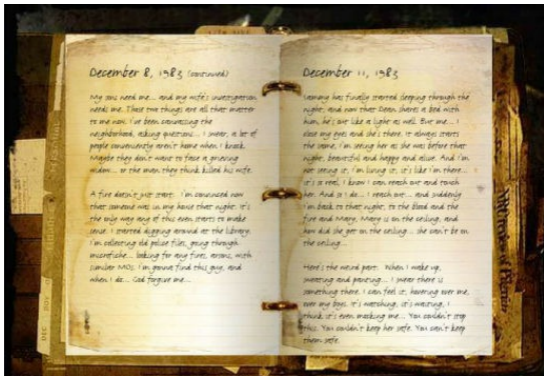 December 8, 1983 (continued)
My sons need me... and my wife's investigation
needs me. Those two things are all that matter
to me now. I've been canvassing the
neighborhood, asking questions... I swear, a lot of
people conveniently aren't home when I knock.
Maybe they don't want to face a grieving
widow... or the man they think killed his wife.
A fire doesn't just start. I'm convinced now
that someone was in my house that night. It's
the only way any of this even starts to make
sense. I started digging around at the library.
I'm collecting old police files, going through
microfiche... looking for any fires, arsons, with
similar MOs. I'm gonna find this guy, and
when I do... God forgive me...
December 11, 1983
Sammy has finally started sleeping through the
night, and now that Dean shares a bed with
him, he's out like a light as well. But me... I
close my eyes and she's there. It always starts
the same, I'm seeing her as she was before that
night, beautiful and happy and alive. And I'm
not seeing it, I'm living it, it's like I'm there...
it's so real, I know I can reach out and touch
her. And so I do... I reach out... and suddenly
I'm back to that night, to the blood and the
fire and Mary, Mary is on the ceiling, and
how did she get on the ceiling... she can't be on
the ceiling...
Here's the weird part. When I wake up,
sweating and panting... I swear there is
something there. I can feel it, hovering over me,
over my boys. It's watching, it's waiting, I
think it's even mocking me... You couldn't stop
this. You couldn't keep her safe. You can't keep
them safe.
DEC
NOV